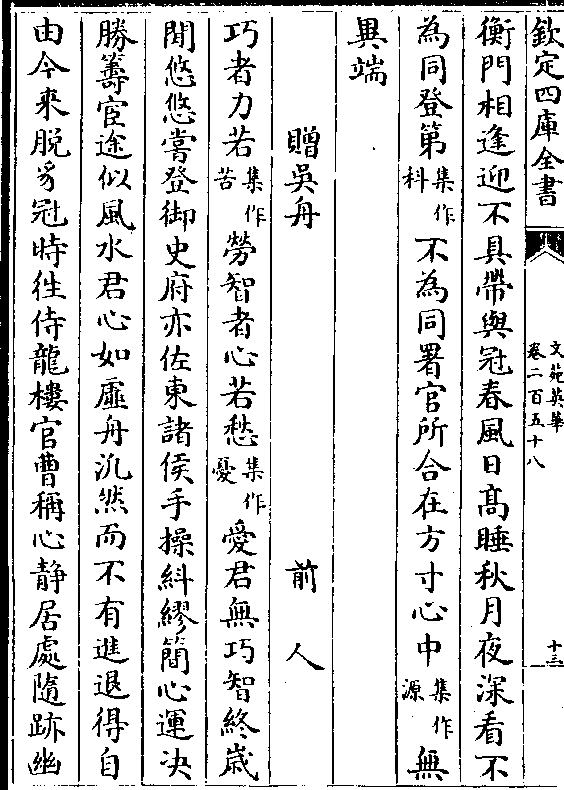 欽定四庫全書
文苑英華
卷二百五十八
十三
衡門相逢迎不具帶與冠春風日髙睡秋月夜深看不
為同登第集作科不為同署官所合在方寸心中集作源無
異端
贈吳舟 前人
巧者力若集作苦勞智者心若愁集作憂愛君無巧智終歲
閒悠悠嘗登御史府亦佐東諸侯手操糾繆簡心運决
勝籌宦途似風水君心如虛舟汎然而不有進退得自
由今來脱豸冠時徃侍龍樓官曹稱心静居處隨跡幽